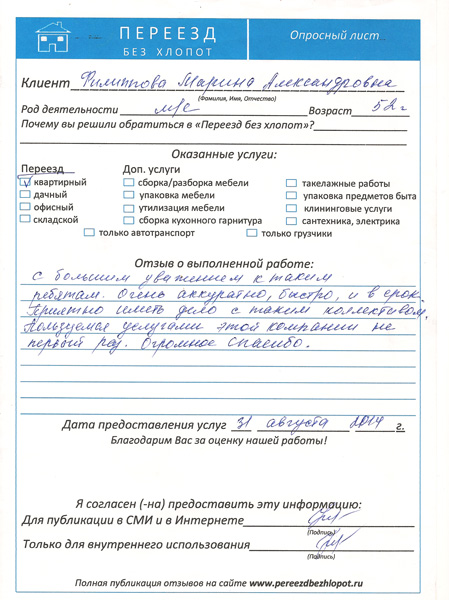 ПЕРЕЕЗД
БЕЗ ХЛОПОТ
Опросный лист
Клиент Филиппова Марина Александровна
(Фамилия, Имя, Отчество)
Род деятельности м/с Возраст 52 г
Почему вы решили обратиться в «Переезд без хлопот»?
Оказанные услуги:
Переезд Доп. услуги
квартирный сборка/разборка мебели такелажные работы
дачный упаковка мебели упаковка предметов быта
офисный утилизация мебели клининговые услуги
складской сборка кухонного гарнитура сантехника, электрика
только автотранспорт только грузчики
Отзыв о выполненной работе:
С большим уважением к таким
ребятам. Очень аккуратно, быстро, и в срок.
Приятно иметь дело с таким коллективом.
Пользуемся услугами этой компании не
первый раз. Огромное спасибо.
Дата предоставления услуг 31 августа 2014 г.
Благодарим Вас за оценку нашей работы!
Я согласен (-на) предоставить эту информацию:
Для публикации в СМИ и в Интернете
(Подпись)
Только для внутреннего использования
(Подпись)
Полная публикация отзывов на сайте www.pereezdbezhlopot.ru